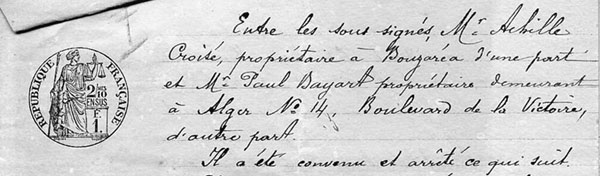 Entre les sous-signés, Mr Achille
Croisé, propriétaire à Bouzaréa d'une part
et Mr Paul Bayart propriétaire demeurant
à Alger No 14, Boulevard de la Victoire,
d'autre part.
Il a été convenu et arrêté ce qui suit.
RÉPUBLIQUE FRANÇAISE
2/10
EN SUS
F
1